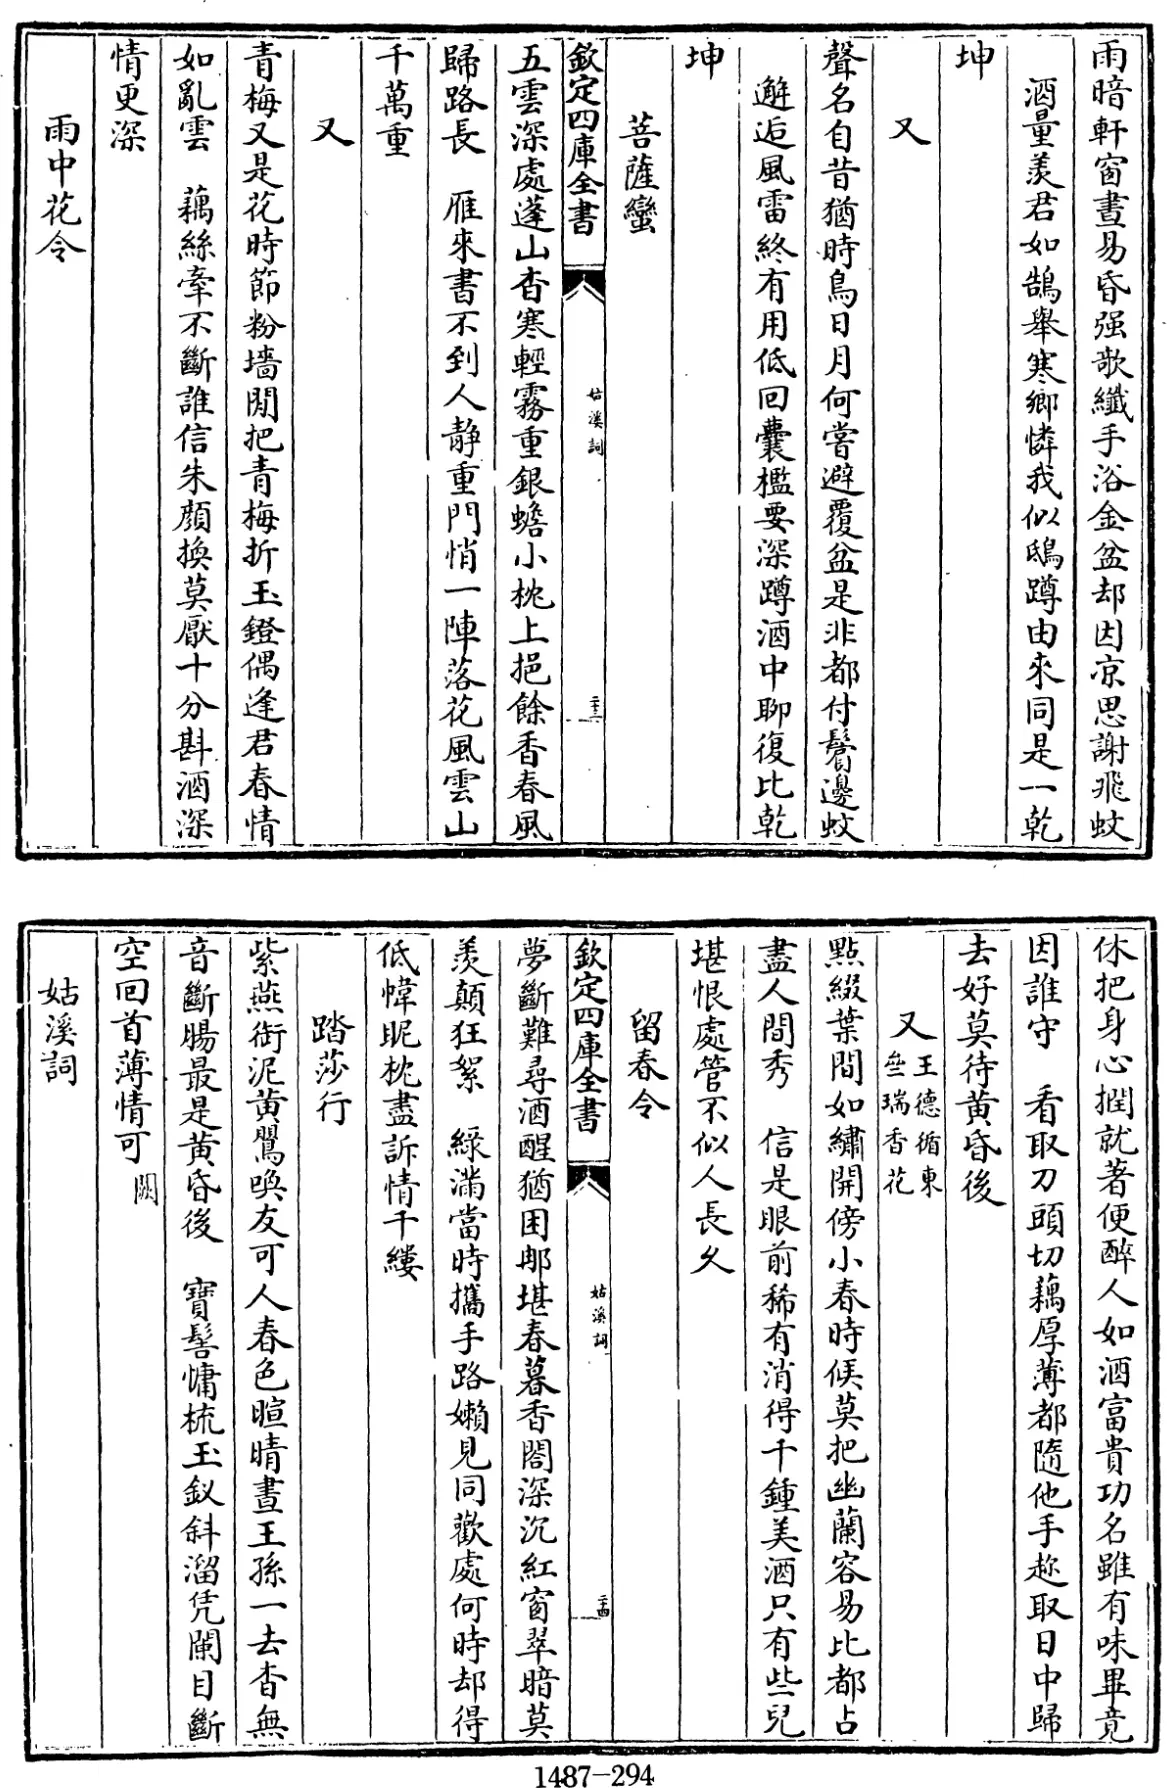 雨暗軒窗晝易昏强歌纖手浴金盆却因凉思謝飛蚊
酒量羨君如鵠舉寒鄉憐我似鴟蹲由來同是一乾
坤
又
聲名自昔猶時鳥日月何嘗避覆盆是非都付鬢邊蚊
邂逅風雷終有用低回囊檻要深蹲酒中聊復比乾
坤
菩薩蠻
欽定四庫全書
姑溪詞
二十三
五雲深處蓬山杳寒輕霧重銀蟾小枕上挹餘香春風
歸路長　雁來書不到人靜重門悄一陣落花風雲山
千萬重
又
青梅又是花時節粉墻閒把青梅折玉鐙偶逢君春情
如亂雲　藕絲牽不斷誰信朱顏換莫厭十分斟酒深
情更深
雨中花令
休把身心撋就著便醉人如酒富貴功名雖有味畢竟
因誰守　看取刀頭切藕厚薄都隨他手趂取日中歸
去好莫待黃昏後
又王德循東齋瑞香花
點綴葉間如繡開傍小春時候莫把幽蘭容易比都占
盡人間秀　信是眼前稀有消得千鍾美酒只有些兒
堪恨處管不似人長久
留春令
欽定四庫全書
姑溪詞
二十四
夢斷難尋酒醒猶困那堪春暮香閣深沉紅窗翠暗莫
羨顛狂絮　綠滿當時攜手路嬾見同歡處何時却得
低幃昵枕盡訴情千縷
踏莎行
紫燕銜泥黃鸎喚友可人春色暄晴晝王孫一去杳無
音斷腸最是黃昏後　寶髻慵梳玉釵斜溜凭闌目斷
空回首薄情可闕
姑溪詞
1487-294